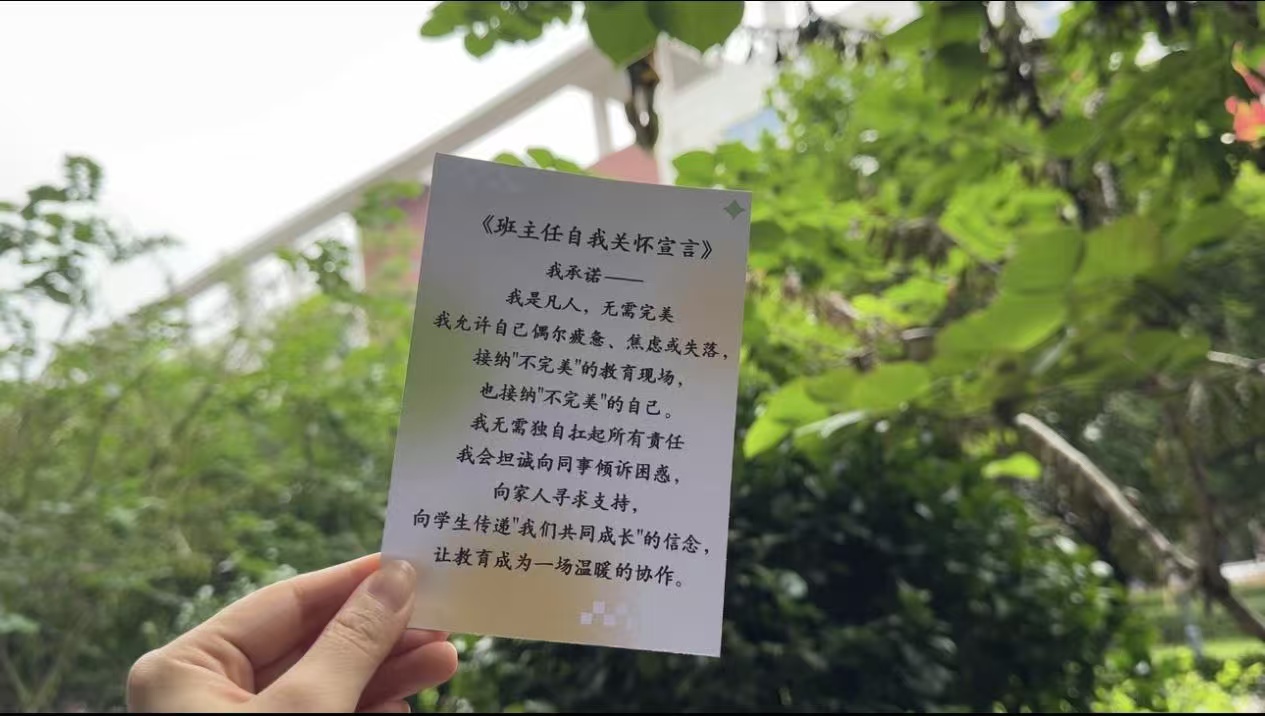 《班主任自我关怀宣言》
我承诺——
我是凡人，无需完美
我允许自己偶尔疲惫、焦虑或失落，
接纳"不完美"的教育现场，
也接纳"不完美"的自己。
我无需独自扛起所有责任
我会坦诚向同事倾诉困惑，
向家人寻求支持，
向学生传递"我们共同成长"的信念，
让教育成为一场温暖的协作。